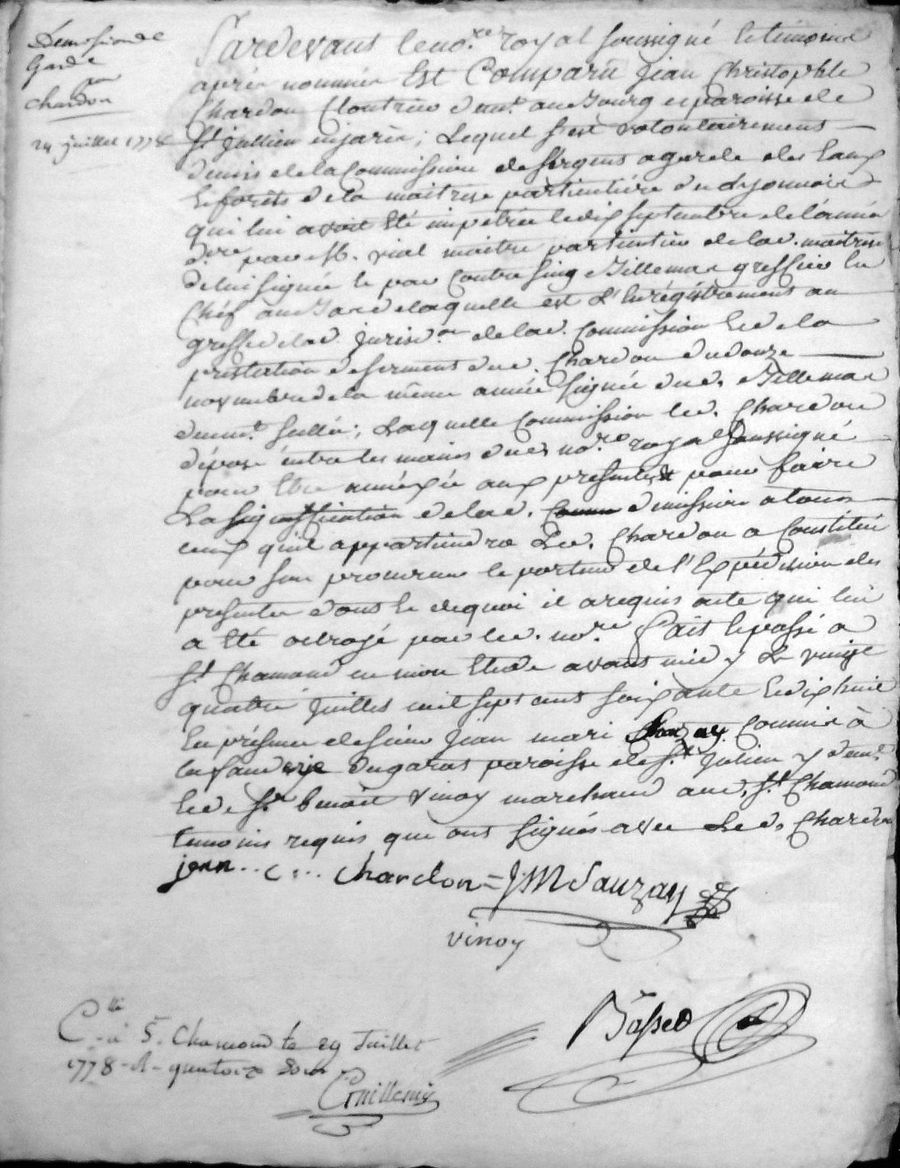 Demission de
Garde
par
chardon
24 juillet 1778
Pardevant le no.re royal soussigné et temoins
après nommés Est Comparu Jean Christophle
Chardon Cloutier dem.t au Bourg et paroisse de
St jullien en jarés; Lequel s'est volontairement
demis de la Commission de sergent a garde des Eaux
et forêts de la maitrise particuliére du Lyonnois
qui lui avoit été le dix septembre de l'année
d.re par M. vial maitre particulier de lad. maitrise
de lui signée et par Contre seing greffier En
Chéf au bas de laquelle est L'Enrégistrement au
greffe de lad. jurisd.on de lad. Commission et de la
prestation de serment dud. Chardon du douze
novembre de la même année signée dud.
duement sellée; Laquelle Commission led. Chardon
dépose entre les mains dud. no.re royal soussigné
pour être annéxée aux presentes pour faire
La signiffication de lad. demission a tous
ceux qu'il appartiendra Led. Chardon a Constitué
pour son procureur le porteur de l'Expédition des
presentes dont et dequoi il a requis acte qui lui
a été octroyé par led. no.re Fait et passé a
St Chamond en mon Etude avant midy Le vingt
quatre juillet mil sept cent soixante et dix huit
En présence de sieur Jean mari Sauzay Commis à
la dugarat paroisse de St Julien y dem.t
et de Sr benoit vinoy marchand aud. St Chamond
temoins requis qui ont signés avec Led. Chardon
jean.. c... chardon = JM Sauzay
vinoy
C.lé à St. Chamond le 29 Juillet
1778 - R - quatorze sols